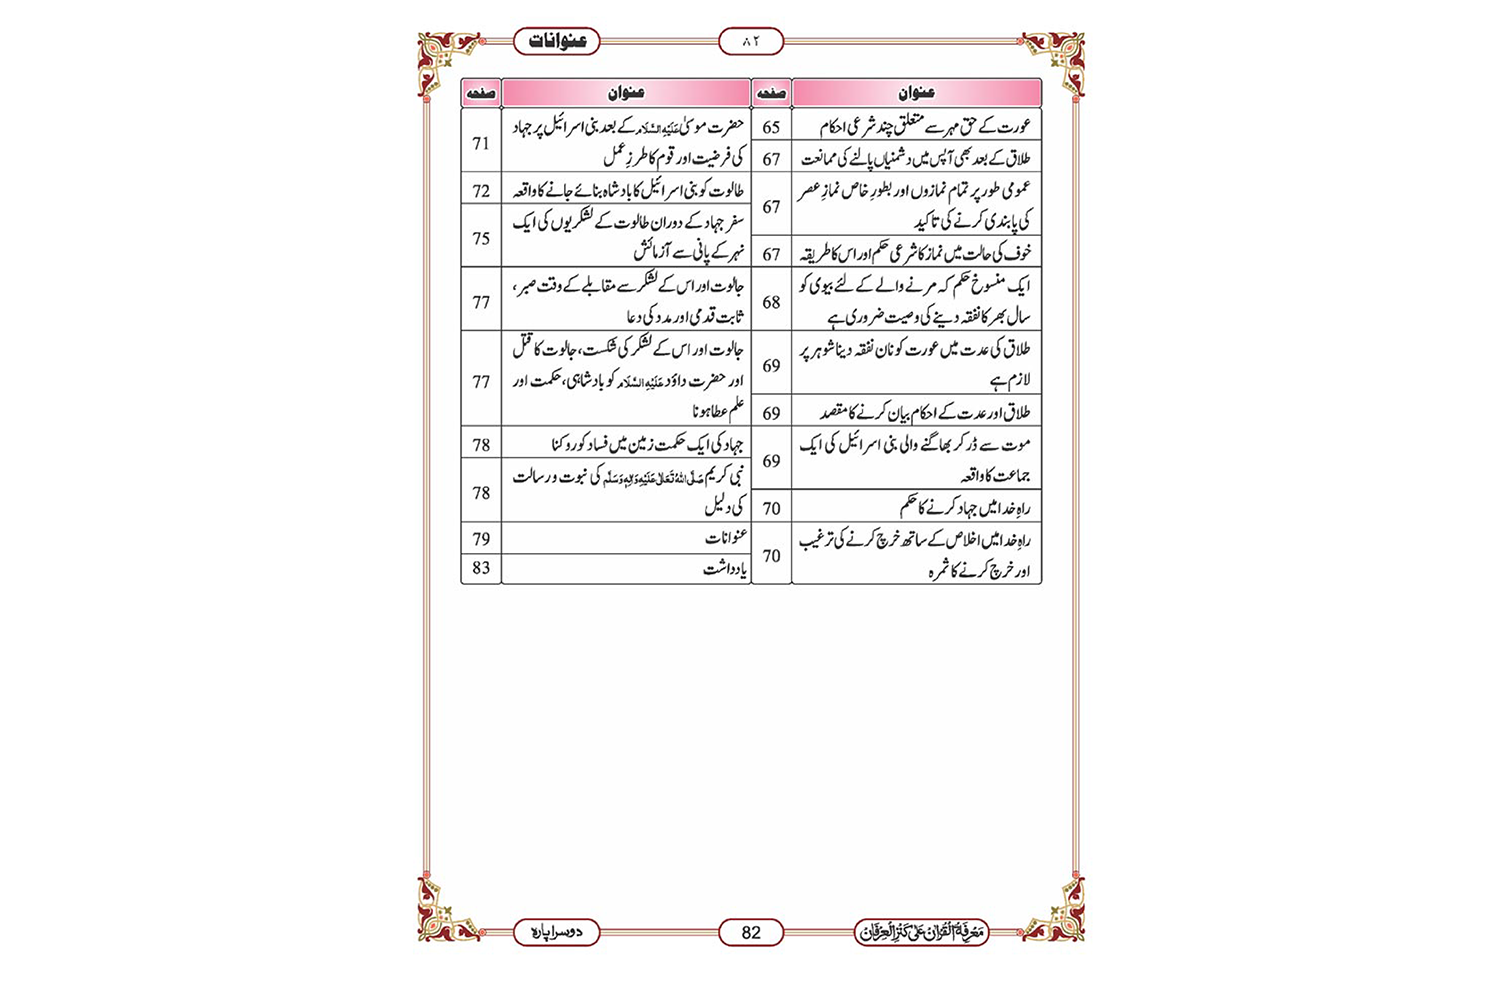 عنوانات
۸۲
عنوان صفحه
عورت کے حق مہر سے متعلق چند شرعی احکام 65
طلاق کے بعد بھی آپس میں دشمنیاں پالنے کی ممانعت 67
عمومی طور پر تمام نمازوں اور بطورِ خاص نمازِ عصر
کی پابندی کرنے کی تاکید 67
خوف کی حالت میں نماز کا شرعی حکم اور اس کا طریقہ 67
ایک منسوخ حکم کہ مرنے والے کے لئے بیوی کو
سال بھر کا نفقہ دینے کی وصیت ضروری ہے 68
طلاق کی عدت میں عورت کو نان نفقہ دینا شوہر پر
لازم ہے 69
طلاق اور عدت کے احکام بیان کرنے کا مقصد 69
موت سے ڈر کر بھاگنے والی بنی اسرائیل کی ایک
جماعت کا واقعہ 69
راہِ خدا میں جہاد کرنے کا حکم 70
راہِ خدا میں اخلاص کے ساتھ خرچ کرنے کی ترغیب
اور خرچ کرنے کا ثمرہ 70
عنوان صفحه
حضرت موسیٰ عَلَيْهِ السَّلَام کے بعد بنی اسرائیل پر جہاد
کی فرضیت اور قوم کا طرزِ عمل 71
طالوت کو بنی اسرائیل کا بادشاہ بنائے جانے کا واقعہ 72
سفرِ جہاد کے دوران طالوت کے لشکریوں کی ایک
نہر کے پانی سے آزمائش 75
جالوت اور اس کے لشکر سے مقابلے کے وقت صبر،
ثابت قدمی اور مدد کی دعا 77
جالوت اور اس کے لشکر کی شکست، جالوت کا قتل
اور حضرت داؤد عَلَيْهِ السَّلَام کو بادشاہی، حکمت اور
علم عطا ہونا 77
جہاد کی ایک حکمت زمین میں فساد کو روکنا 78
نبی کریم صَلَّى اللهُ تَعَالٰى عَلَيْهِ وَاٰلِهٖ وَسَلَّم کی نبوت و رسالت
کی دلیل 78
عنوانات 79
یادداشت 83
مَعْرِفَةُ الْقُرْاٰن عَلٰى كَنْزُ الْعِرْفَان
82
دوسرا پارہ